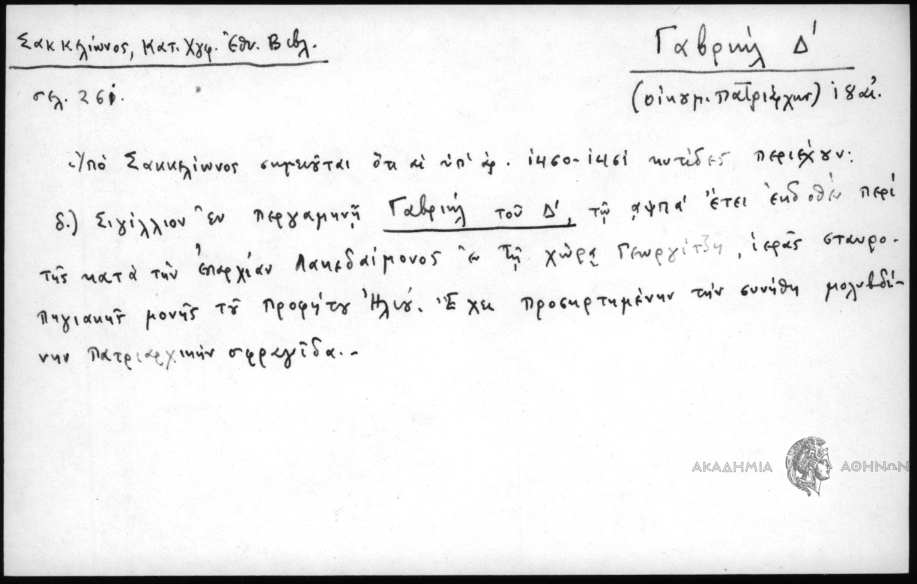 Σακκελίωνος, Κατ. Χγφ. Ἐθν. Βιβλ.
σελ. 261.
Γαβριήλ Δ'
(οἰκουμ. πατριάρχης) ιη αἰ.
Ὑπό Σακκελίωνος σημειοῦται ὅτι αἱ ὑπ' ἀρ. 1450-1451 κυτίδες περιέχουν:
δ.) Σιγίλλιον ἐν περγαμηνῇ Γαβριήλ τοῦ Δ', τῷ ͵αψπα' ἔτει ἐκδοθέν περί
τῆς κατά τήν ἐπαρχίαν Λακεδαίμονος ἐν τῇ χώρᾳ Γεωργίτζη, ἱερᾶς σταυρο-
πηγιακῆς μονῆς τοῦ Προφήτου Ἠλιού. Ἔχει προσηρτημένην τήν συνήθη μολυβδί-
νην πατριαρχικήν σφραγῖδα.-
ΑΚΑΔΗΜΙΑ ΑΘΗΝΩΝ